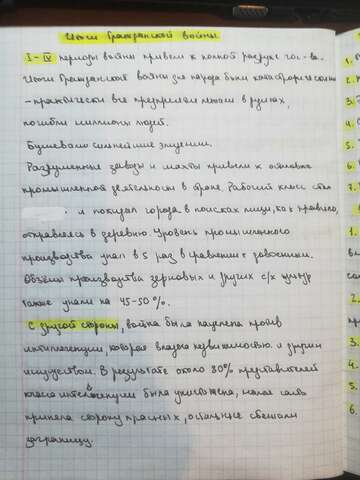 Итоги Гражданской войны
I-IV периоды войны привели к полной разрухе гос-ва.
Итоги Гражданской войны для народа были катастрофическими
- практически все предприятия лежали в руинах,
погибли миллионы людей.
Бушевали сильнейшие эпидемии.
Разрушенные заводы и шахты привели к остановке
промышленной деятельности в стране. Рабочий класс стал
и покидал города в поисках пищи, как правило,
отправляясь в деревню. Уровень промышленного
производства упал в 5 раз в сравнении с довоенным.
Объёмы производства зерновых и других с/х культур
также упали на 45-50%.
С другой стороны, война была нацелена против
интеллигенции, которая владела недвижимостью и другим
имуществом. В результате около 80% представителей
класса интеллигенции была уничтожена, малая часть
приняла сторону красных, остальные сбежали
заграницу.